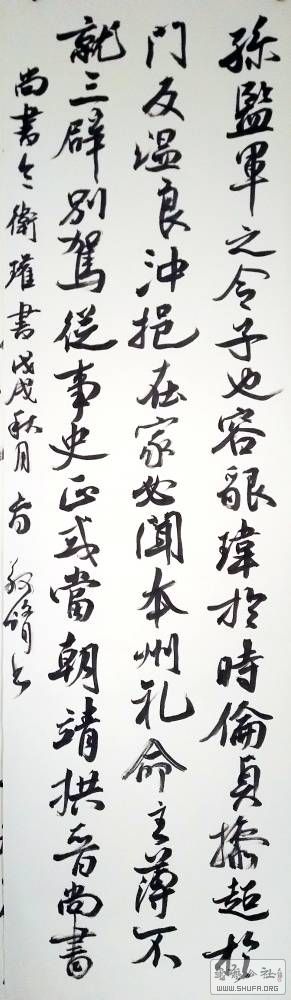 孫監軍之令子也容貌瑋於時倫貞操超於
門友温良沖挹在家必聞本州礼命主薄不
就三辟别駕從事史正式當朝靖拱晋尚書
尚書令衛瓘書戊戌秋月
WWW.SHUFA.ORG